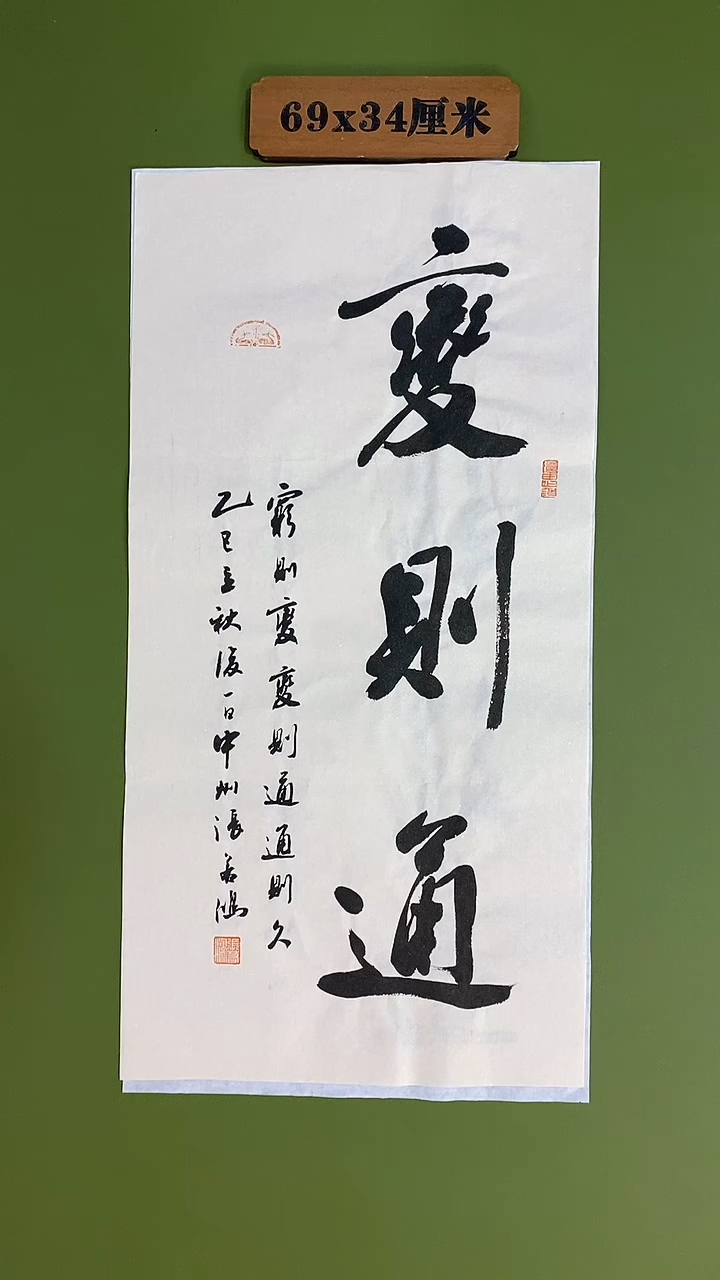 69x34厘米
變則通
窮則變變則通通則久
乙巳立秋後一日中州張善鴻